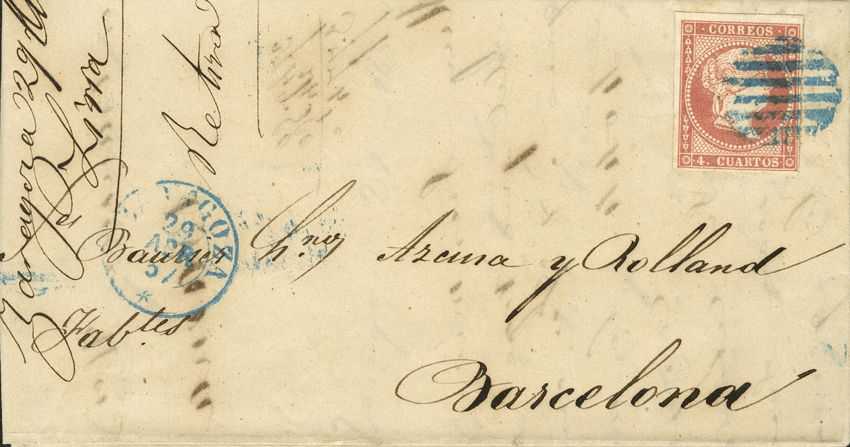 CORREOS
4. CUARTOS
Zaragoza 29
Retiro
ZARAGOZA
29
ABR
57
Azcuna y Rolland
Fabtes
Barcelona